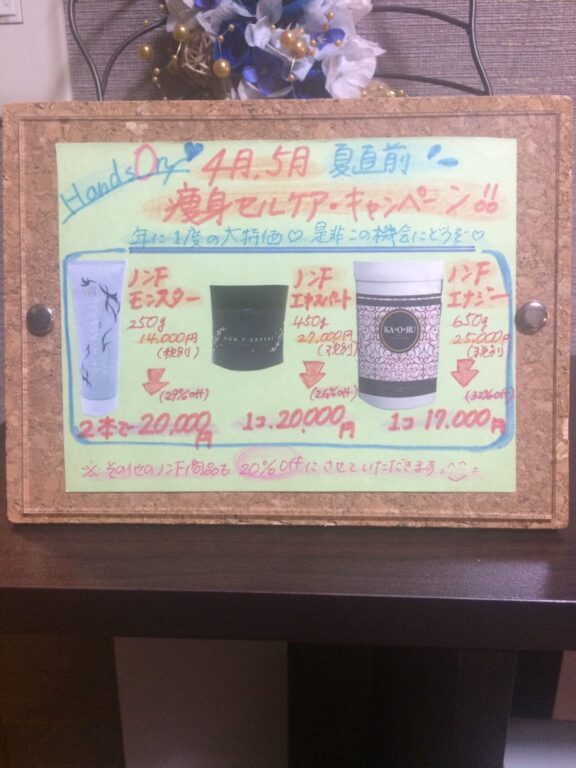 HandsOn 4月、5月 夏直前
痩身セルケア・キャンペーン!!
年に1度の大特価♡ 是非この機会にどうぞ♡
ノンF
モンスター
250g
14,000円
(税別)
(29%off)
2本で20,000円
ノンF
エキスパート
450g
27,000円
(税別)
(26%off)
1コ 20,000円
KA・O・RU
ノンF
エナジー
650g
25,000円
(税別)
(32%off)
1コ 17,000円
※その他のノンF商品も 20%offにさせていただきます。